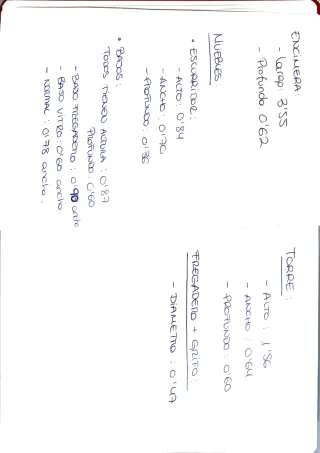 ENCIMERA
- Largo: 3'55
- Profundo 0'62
MUEBLES:
* ESCURRIDOR:
- ALTO: 0'84
- ANCHO: 0'76
- PROFUNDO: 0'36
* BAJOS:
TODOS TIENEN ALTURA: 0'87
PROFUNDO: 0'60
- BAJO FREGADERO: 0'90 ancho
- BAJO VITRO: 0'60 ancho
- NORMAL: 0'78 ancho.
TORRE:
- ALTO: 1'96
- ANCHO: 0'64
- PROFUNDO: 0'60
FREGADERO + GRIFO:
- DIAMETRO: 0'47